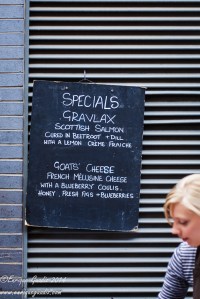 SPECIALS
GRAVLAX
SCOTTISH SALMON
CURED IN BEETROOT + DILL
WITH A LEMON CRÈME FRAICHE
GOATS' CHEESE
FRENCH MÉLUSINE CHEESE
WITH A BLUEBERRY COULIS,
HONEY, FRESH FIGS + BLUEBERRIES